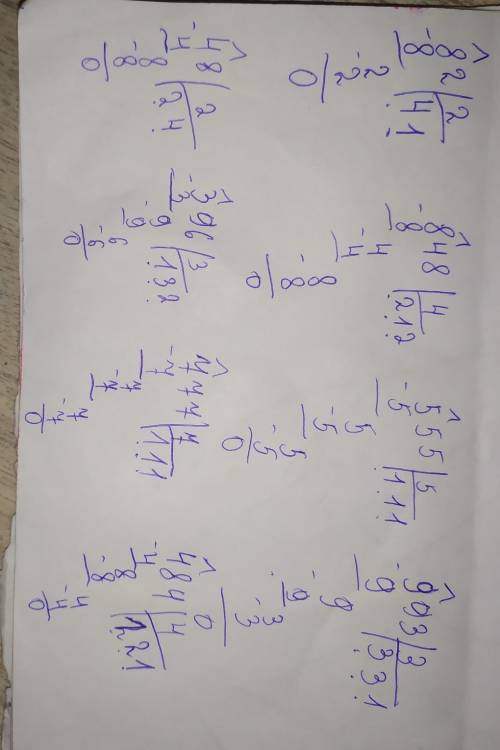 82 | 2
-8 | 41
2
-2
0
848 | 4
-8 | 212
4
-4
8
-8
0
555 | 5
-5 | 111
5
-5
5
-5
0
993 | 3
-9 | 331
9
-9
3
-3
0
48 | 2
-4 | 24
8
-8
0
396 | 3
-3 | 132
9
-9
6
-6
0
777 | 7
-7 | 111
7
-7
7
-7
0
484 | 4
-4 | 121
8
-8
4
-4
0